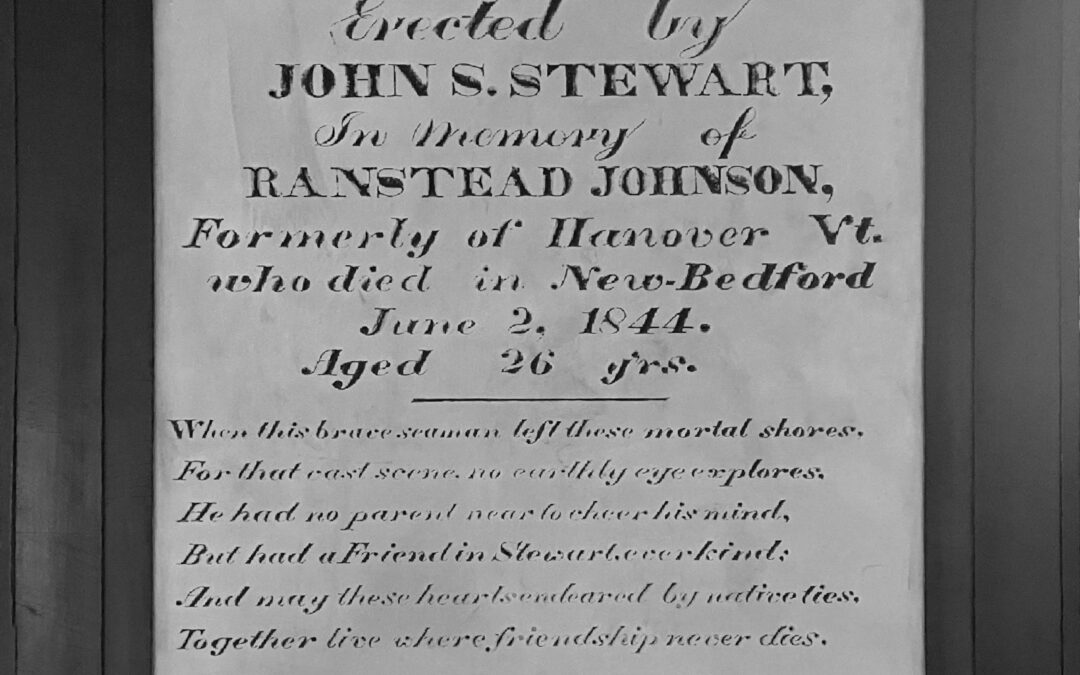 Erected by
JOHN S. STEWART,
In Memory of
RANSTEAD JOHNSON,
Formerly of Hanover Vt.
who died in New-Bedford
June 2, 1844.
Aged 26 yrs.
When this brave seaman left these mortal shores,
For that vast scene, no earthly eye explores,
He had no parent near to cheer his mind,
But had a Friend in Stewart, ever kind;
And may these hearts endeared by native ties,
Together live where friendship never dies.